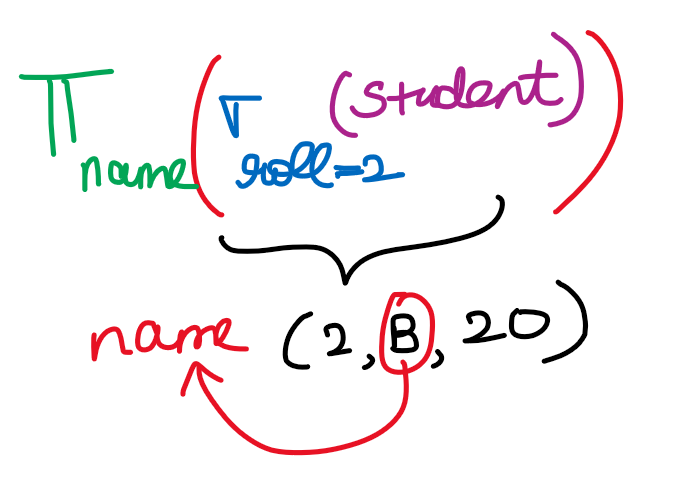 π name ( σ roll=2 (student) )
name (2, B, 20)